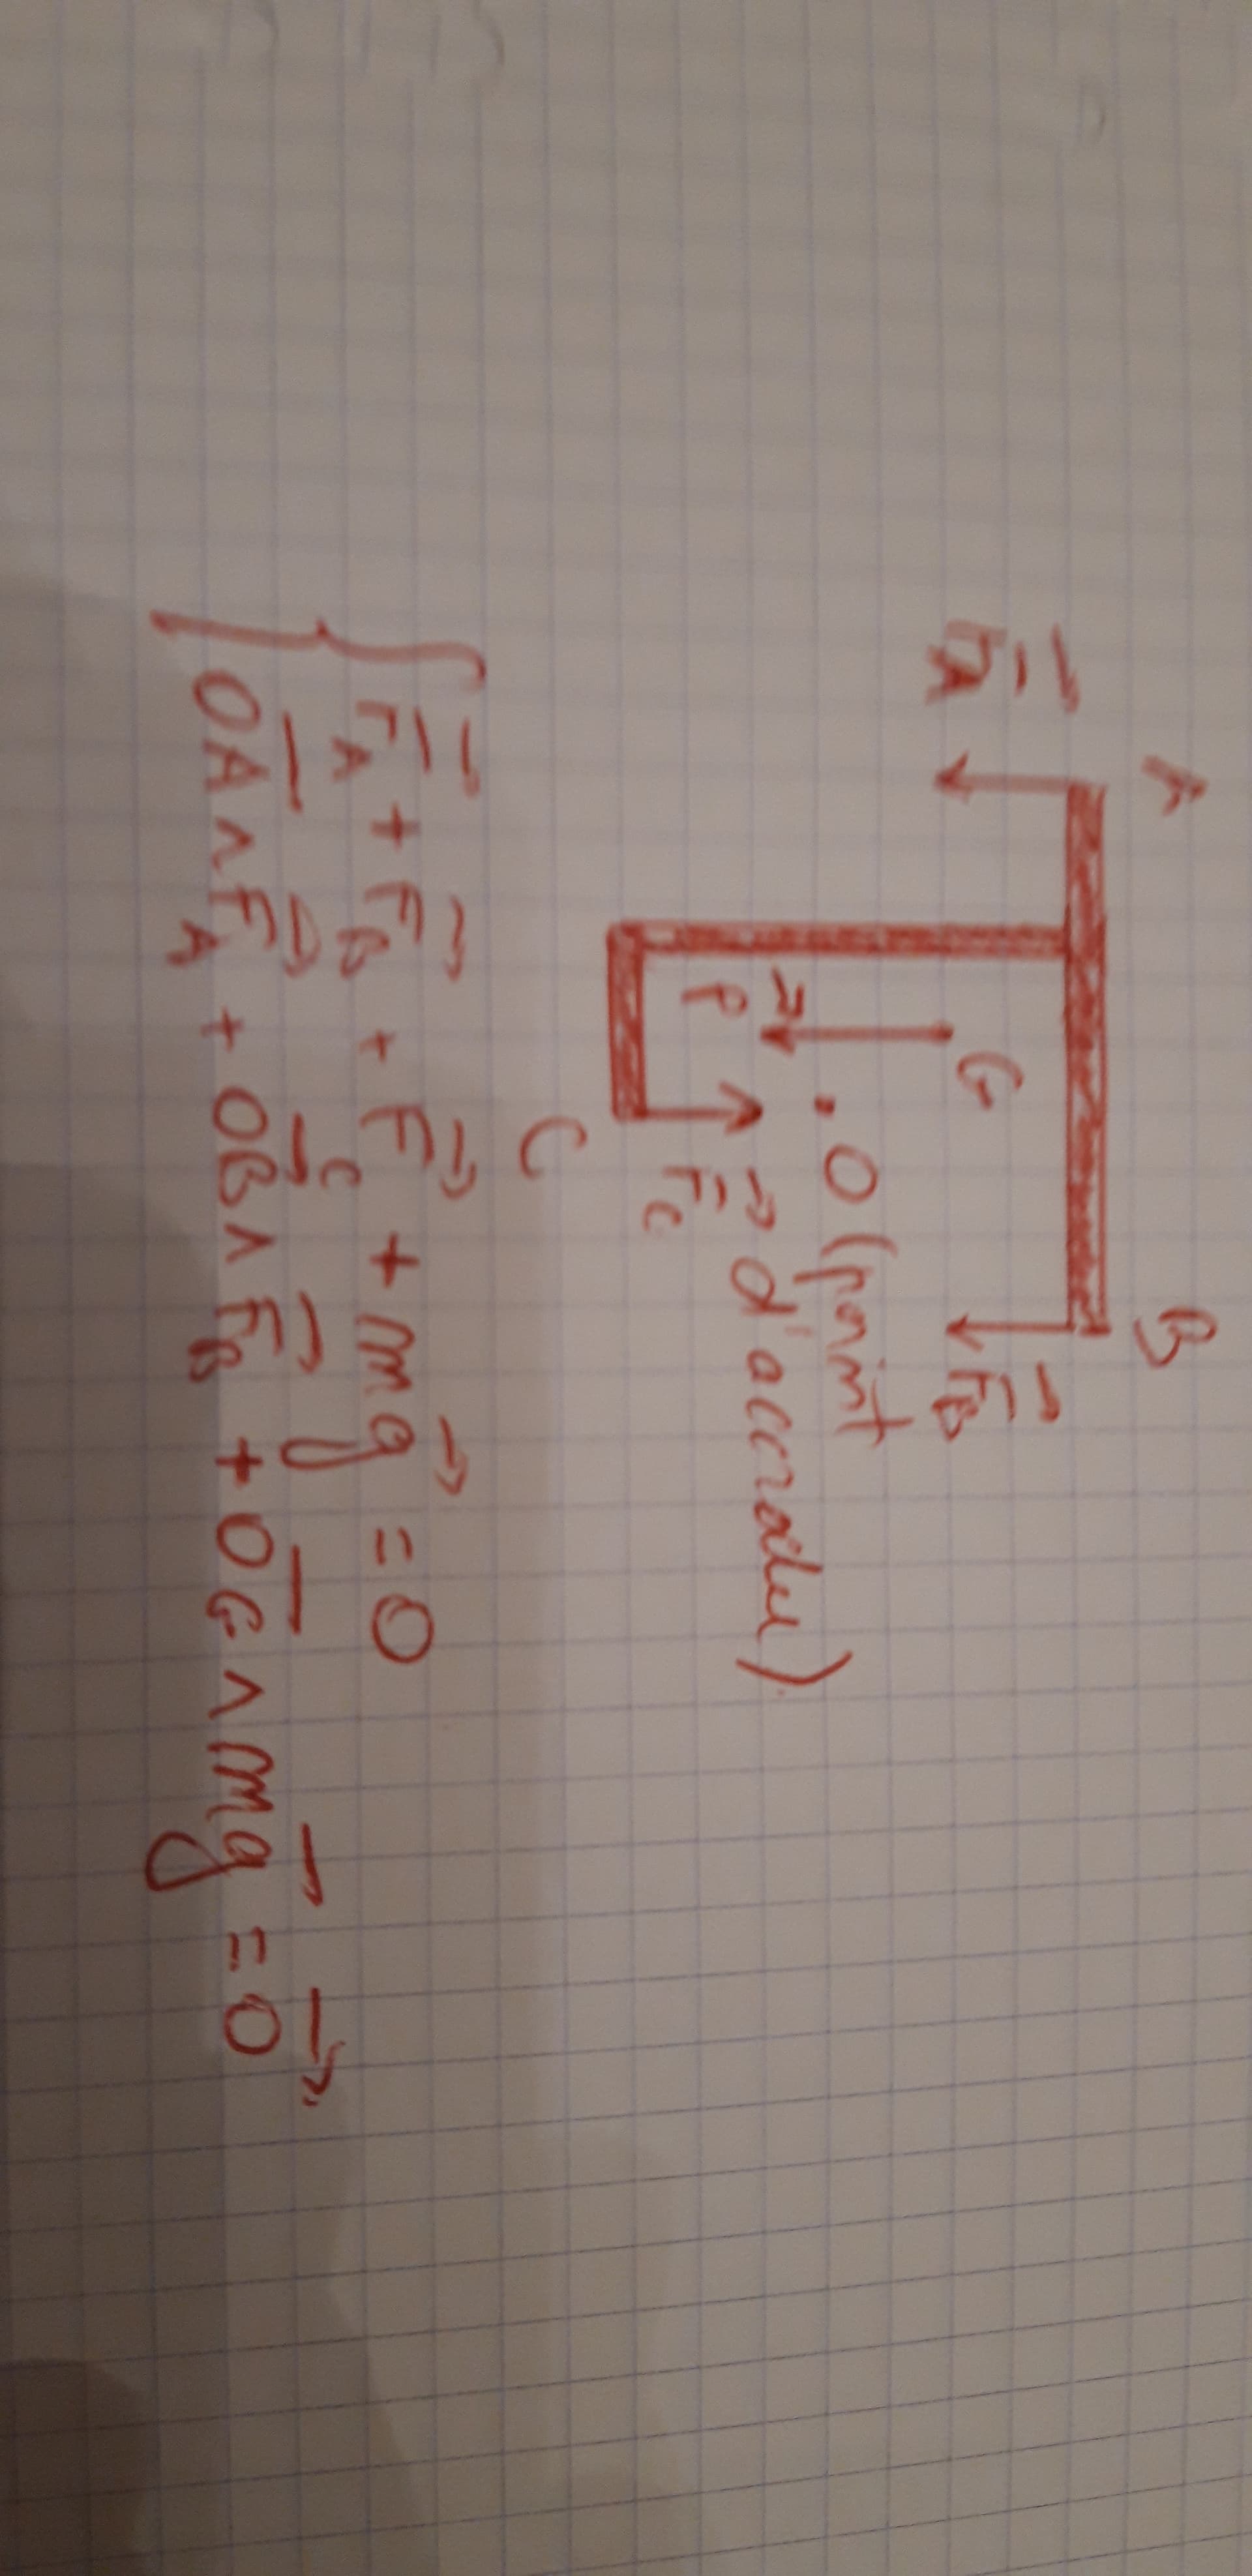 A B
F⃗A F⃗B
G
O (point
d'accroche)
P⃗ F⃗c
C
F⃗A + F⃗B + F⃗c + mg⃗ = 0
O⃗A ∧ F⃗A + O⃗B ∧ F⃗B + O⃗G ∧ mg⃗ = 0⃗